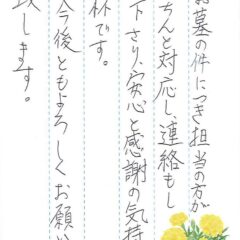 お墓の件につき担当の方が
ちんと対応し、連絡もし
下さり、安心と感謝の気持
杯です。
今後ともよろしくお願い
致します。